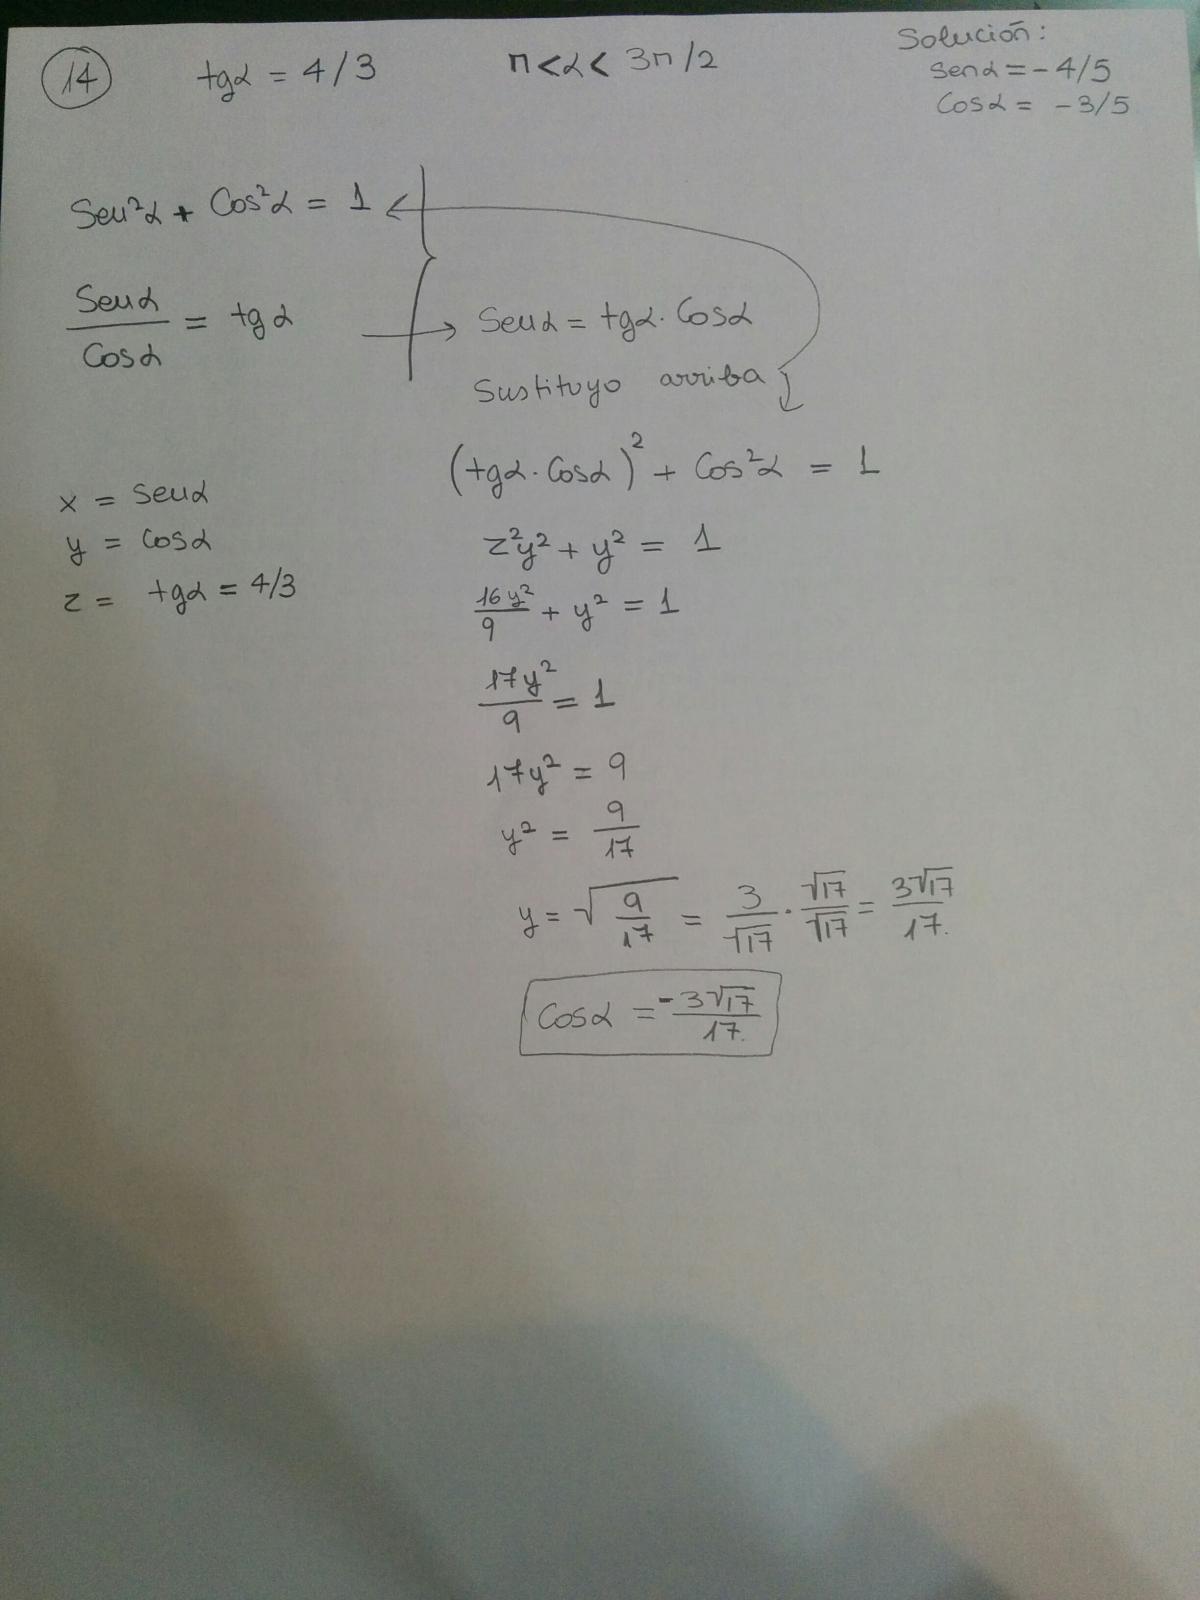 14 tgα = 4/3 π<α< 3π/2
Solución:
senα = -4/5
Cosα = -3/5
Sen²α + Cos²α = 1
Senα/Cosα = tgα → Senα = tgα · Cosα
Sustituyo arriba
(tgα · Cosα)² + Cos²α = 1
x = senα
y = cosα
z = tgα = 4/3
z²y² + y² = 1
16y²/9 + y² = 1
17y²/9 = 1
17y² = 9
y² = 9/17
y = √(9/17) = 3/√17 · √17/√17 = 3√17/17.
Cosα = -3√17/17.